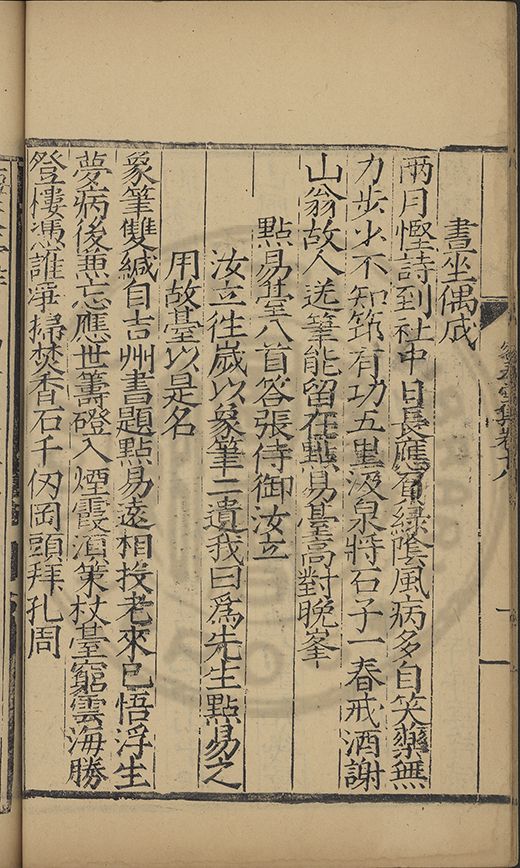 晝坐偶成
兩月慳詩到社中日長應有綠陰風病多自笑藥無
力步少不知筇有功五里汲泉將石子一春戒酒謝
山翁故人送筆能留在點易臺高對晚峯
點易臺八首答張侍御汝立
汝立往歲以象筆二遺我曰爲先生點易之
用故臺以是名
象筆雙緘自吉州書題點易遠相投老來已悟浮生
夢病後兼忘應世籌磴入煙霞湏策杖臺窮雲海勝
登樓憑誰淨掃焚香石千仞岡頭拜孔周